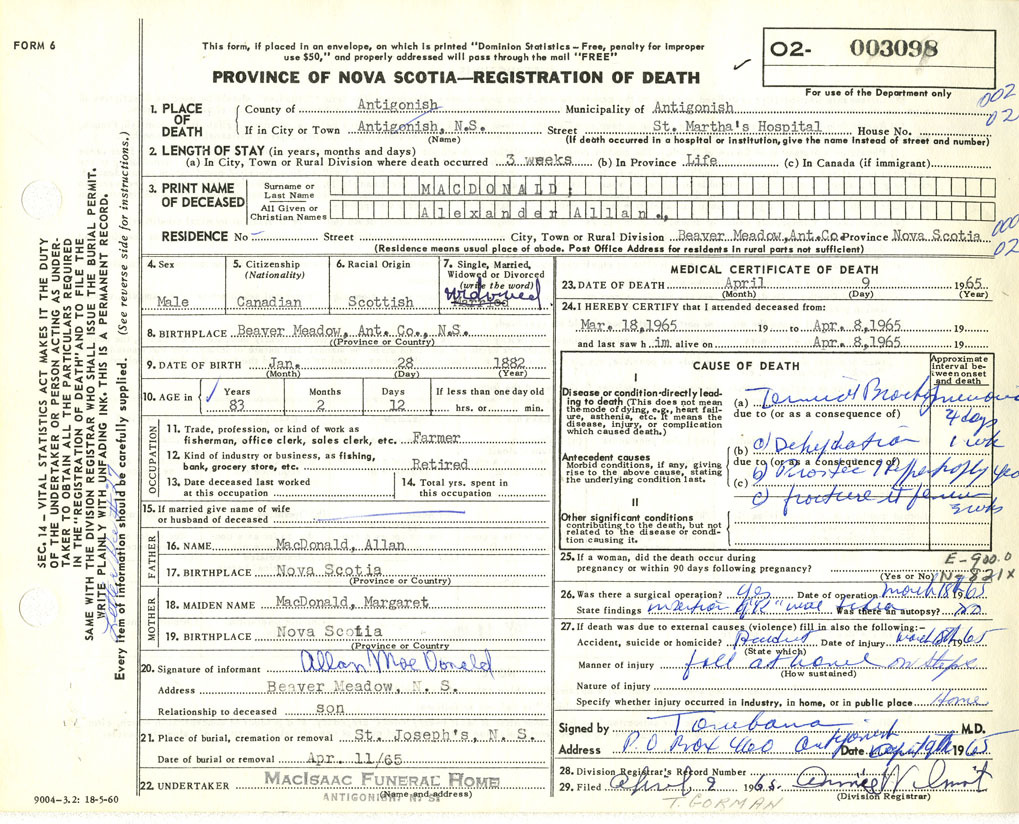 FORM 6
This form, if placed in an envelope, on which is printed "Dominion Statistics – Free, penalty for improper
use $50," and properly addressed will pass through the mail "FREE"
PROVINCE OF NOVA SCOTIA—REGISTRATION OF DEATH
O2- 003098
For use of the Department only
002
02
1. PLACE OF DEATH
County of Antigonish Municipality of Antigonish
If in City or Town Antigonish, N.S. Street St. Martha's Hospital House No.
(Name) (If death occurred in a hospital or institution, give the name instead of street and number)
2. LENGTH OF STAY (in years, months and days)
(a) In City, Town or Rural Division where death occurred 3 weeks (b) In Province Life (c) In Canada (if immigrant)
3. PRINT NAME OF DECEASED
Surname or Last Name MACDONALD,
All Given or Christian Names Alexander Allan.,
000
02
RESIDENCE No – Street City, Town or Rural Division Beaver Meadow, Ant. Co. Province Nova Scotia
(Residence means usual place of abode. Post Office Address for residents in rural parts not sufficient)
4. Sex
Male
5. Citizenship
(Nationality)
Canadian
6. Racial Origin
Scottish
7. Single, Married,
Widowed or Divorced
(write the word)
Widowed
8. BIRTHPLACE Beaver Meadow, Ant. Co., N.S.
(Province or Country)
9. DATE OF BIRTH Jan. 28 1882
(Month) (Day) (Year)
10. AGE in Years Months Days If less than one day old
83 2 12 hrs. or min.
OCCUPATION
11. Trade, profession, or kind of work as
fisherman, office clerk, sales clerk, etc. Farmer
12. Kind of industry or business, as fishing,
bank, grocery store, etc. Retired
13. Date deceased last worked
at this occupation
14. Total yrs. spent in
this occupation
15. If married give name of wife
or husband of deceased
FATHER
16. NAME MacDonald, Allan
17. BIRTHPLACE Nova Scotia
(Province or Country)
MOTHER
18. MAIDEN NAME MacDonald, Margaret
19. BIRTHPLACE Nova Scotia
(Province or Country)
20. Signature of informant Allan MacDonald
Address Beaver Meadow, N. S.
Relationship to deceased son
21. Place of burial, cremation or removal St. Joseph's, N. S.
Date of burial or removal Apr. 11/65
22. UNDERTAKER MACISAAC FUNERAL HOME
ANTIGONISH N. S.
(Name and address)
MEDICAL CERTIFICATE OF DEATH
23. DATE OF DEATH April 9 1965
(Month) (Day) (Year)
24. I HEREBY CERTIFY that I attended deceased from:
Mar. 18, 1965 19 to Apr. 8, 1965 19
and last saw him alive on Apr. 8, 1965 19
CAUSE OF DEATH
Approximate interval between onset and death
I
Disease or condition directly leading to death (This does not mean
the mode of dying, e.g., heart failure, asthenia, etc. It means the
disease, injury, or complication
which caused death.)
(a)
due to (or as a consequence of)
4 days
Antecedent causes
Morbid conditions, if any, giving
rise to the above cause, stating
the underlying condition last.
(b) Dehydration 1 wk
due to (or as a consequence of)
(c)
c) fracture
3 wks
II
Other significant conditions
contributing to the death, but not
related to the disease or condition causing it.
25. If a woman, did the death occur during
pregnancy or within 90 days following pregnancy?
(Yes or No)
E-900.0
N-821X
26. Was there a surgical operation? Yes Date of operation March 18th 1965
State findings Was there an autopsy? No
27. If death was due to external causes (violence) fill in also the following:–
Accident, suicide or homicide? Date of injury 1965
(State which)
Manner of injury fall at home on steps
(How sustained)
Nature of injury
Specify whether injury occurred in industry, in home, or in public place Home
Signed by M.D.
Address P.O Box 460 Antigonish Date 1965
28. Division Registrar's Record Number
29. Filed April 9 1965
(Division Registrar)
T. GORMAN
SEC. 14 – VITAL STATISTICS ACT MAKES IT THE DUTY
OF THE UNDERTAKER OR PERSON ACTING AS UNDERTAKER TO OBTAIN ALL THE PARTICULARS REQUIRED
IN THE "REGISTRATION OF DEATH" AND TO FILE THE
SAME WITH THE DIVISION REGISTRAR WHO SHALL ISSUE THE BURIAL PERMIT.
WRITE PLAINLY WITH UNFADING INK. THIS IS A PERMANENT RECORD.
Every item of information should be carefully supplied. (See reverse side for instructions.)
9004-3.2: 18-5-60